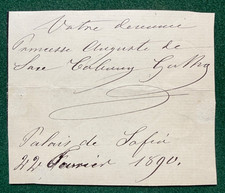 Votre dévouée
Princesse Auguste de
Saxe Cobourg Gotha
Palais de Sofia
22 Février 1890.